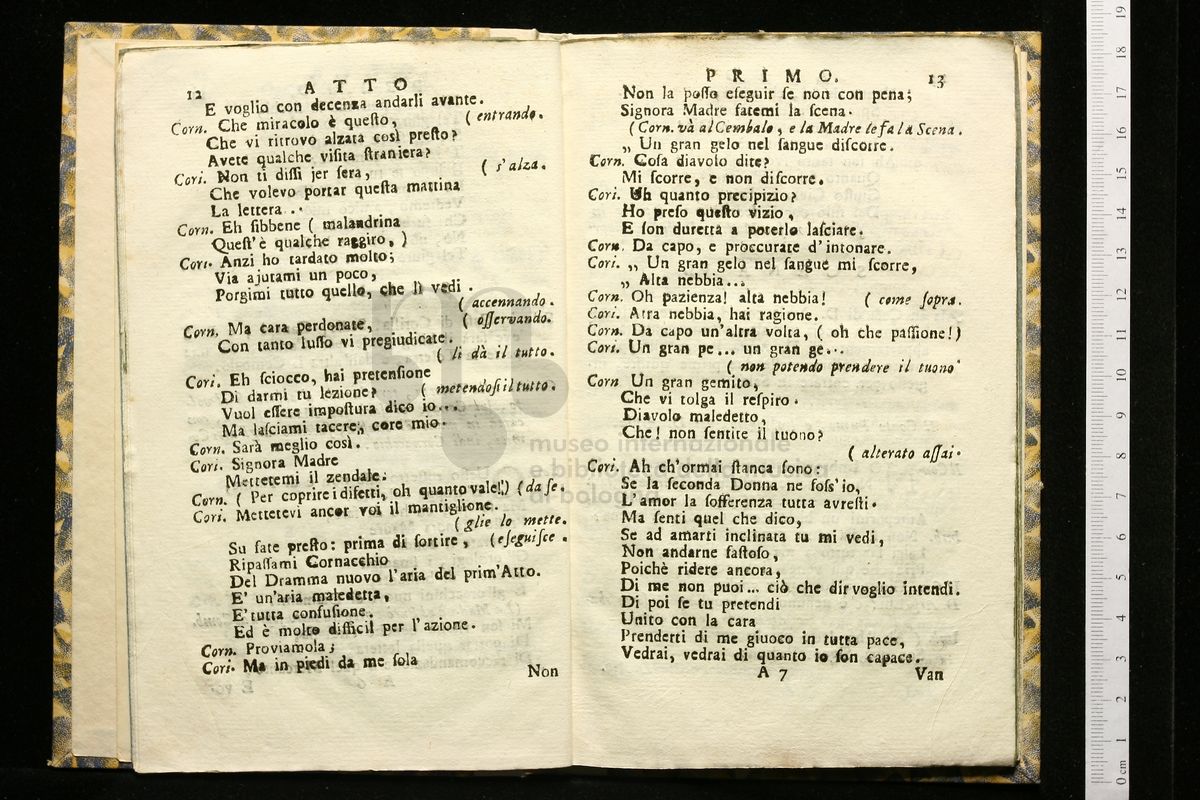 12 ATTO
E voglio con decenza andarli avante.
Corn. Che miracolo è queſto, ( entrando.
Che vi ritrovo alzata così preſto?
Avete qualche viſita ſtraniera?
Cori. Non ti diſſi jer ſera, ( s'alza.
Che volevo portar queſta mattina
La lettera . .
Corn. Eh ſibbene ( malandrina
Queſt'è qualche raggiro, )
Cori. Anzi ho tardato molto;
Via ajutami un poco,
Porgimi tutto quello, che lì vedi .
( accennando.
Corn. Ma cara perdonate, ( oſſervando.
Con tanto luſſo vi pregiudicate.
( li dà il tutto.
Cori. Eh ſciocco, hai pretenſione
Di darmi tu lezione? ( metendoſi il tutto.
Vuol eſſere impoſtura dico io...
Ma laſciami tacere, core mio.
Corn. Sarà meglio così.
Cori. Signora Madre
Mettetemi il zendale.
Corn. ( Per coprire i difetti, oh quanto vale!) (da ſe.
Cori. Mettetevi ancor voi il mantiglione.
(glie lo mette.
Su fate preſto: prima di ſortire, (eſeguiſce .
Ripaſſami Cornacchio
Del Dramma nuovo l'aria del prim'Atto.
E' un'aria maledetta,
E' tutta confuſione.
Ed è molto difficil per l'azione.
Corn. Proviamola;
Cori. Ma in piedi da me ſola
Non
PRIMO. 13
Non la poſſo eſeguir ſe non con pena;
Signora Madre fatemi la ſcena.
(Corn. và al Cembalo, e la Madre ſe fa la Scena.
„ Un gran gelo nel ſangue diſcorre.
Corn. Coſa diavolo dite?
Mi ſcorre, e non diſcorre.
Cori. Uh quanto precipizio?
Ho preſo queſto vizio,
E ſon duretta a poterlo laſciare.
Corn. Da capo, e proccurate d'intonare.
Cori. „ Un gran gelo nel ſangue mi ſcorre,
„ Alta nebbia...
Corn. Oh pazienza! alta nebbia! ( come ſopra.
Cori. Atra nebbia, hai ragione.
Corn. Da capo un'altra volta, ( oh che paſſione!)
Cori. Un gran pe... un gran ge...
( non potendo prendere il tuono
Corn Un gran gemito,
Che vi tolga il reſpiro.
Diavolo maledetto,
Che! non ſentite il tuono?
( alterato aſſai.
Cori. Ah ch'ormai ſtanca ſono:
Se la ſeconda Donna ne foſs'io,
L'amor la ſofferenza tutta avreſti.
Ma ſenti quel che dico,
Se ad amarti inclinata tu mi vedi,
Non andarne faſtoſo,
Poichè ridere ancora,
Di me non puoi... ciò che dir voglio intendi.
Di poi ſe tu pretendi
Unito con la cara
Prenderti di me giuoco in tutta pace,
Vedrai, vedrai di quanto io ſon capace.
A 7 Van
museo internazionale
e biblioteca della musica
di bologna
0 cm 1 2 3 4 5 6 7 8 9 10 11 12 13 14 15 16 17 18 19